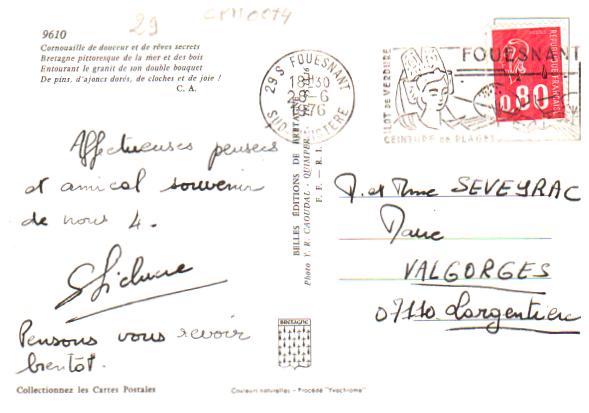 29 CM10074
9610
Cornouaille de douceur et de rêves secrets
Bretagne pittoresque de la mer et des bois
Entourant le granit de son double bouquet
De pins, d'ajoncs dorés, de cloches et de joie !
C. A.
29 S FOUESNANT
18H30
6
1976
SUD FINISTERE
FOUESNANT
ILOT DE VERDURE
CEINTURE de PLAGES
0,80
REPUBLIQUE FRANCAISE
Affectueuses pensées
et amical souvenir
de nous 4.
Pensons vous revoir
bientôt.
BELLES ÉDITIONS DE BRETAGNE
Photo Y. R. CAOUDAL - QUIMPER
F. F. — R. I.
M. et Mme SEVEYRAC
VALGORGES
07110. Largentière
BRETAGNE
Collectionnez les Cartes Postales
Couleurs naturelles - Procédé "Yvachrome"